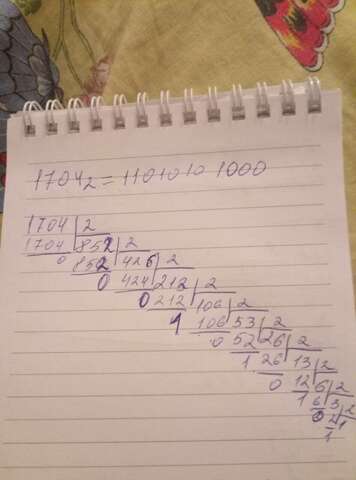 1704₂ = 1101010 1000
1704 2
1704 852 2
0 852 426 2
0 424 212 2
0 212 106 2
1 106 53 2
0 52 26 2
1 26 13 2
0 12 6 2
1 6 3 2
0 2 1
1